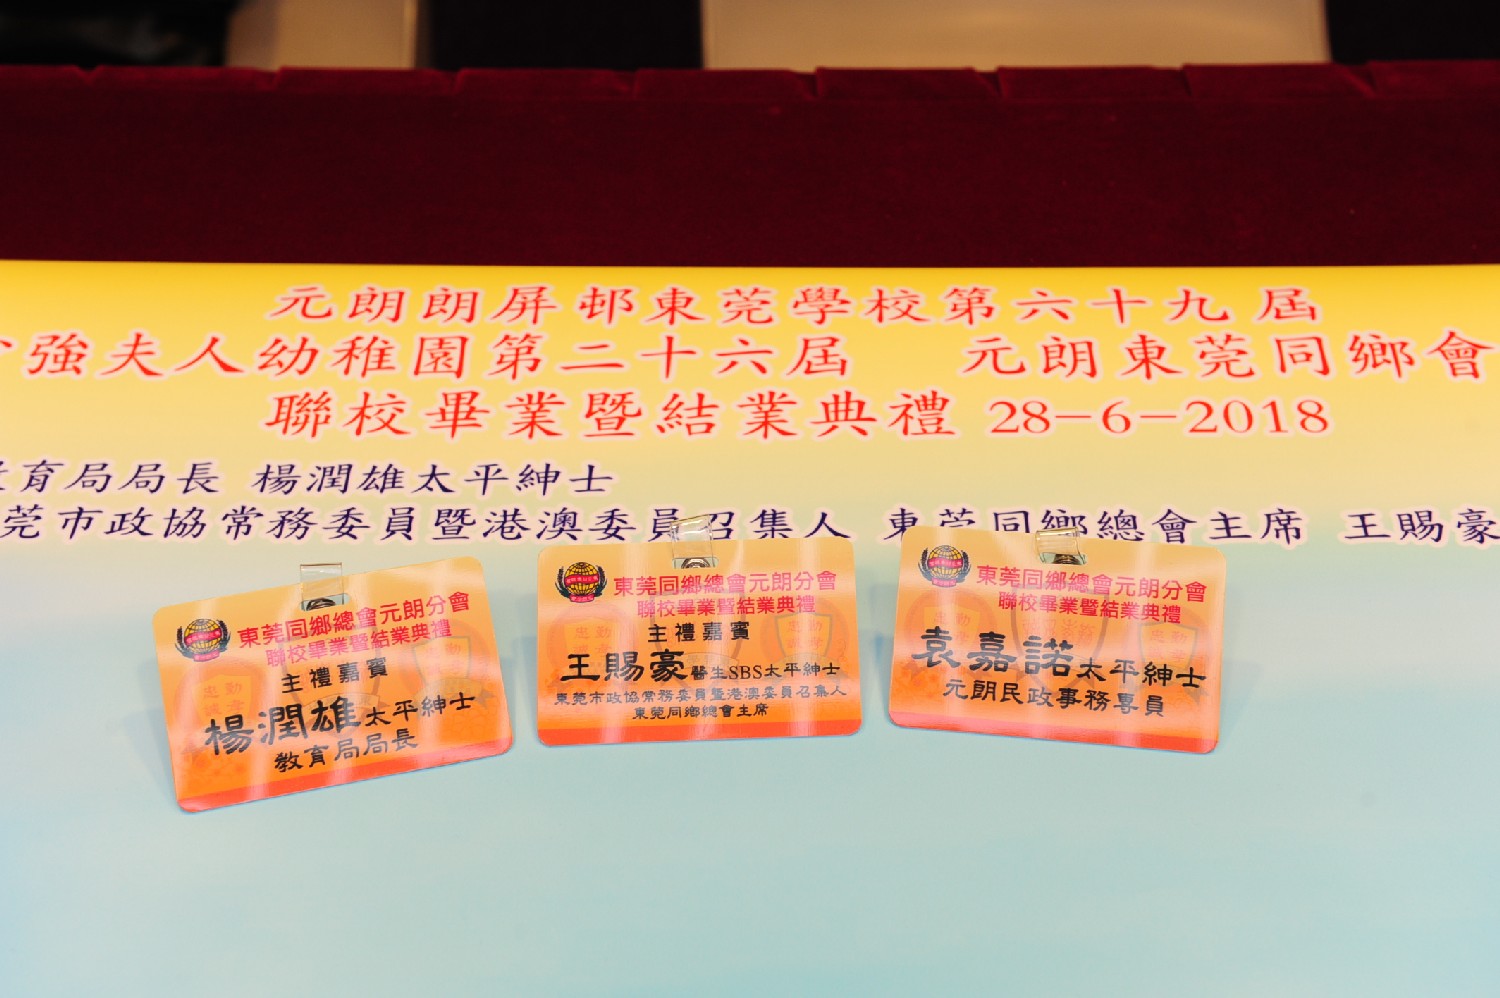 元朗朗屏邨東莞學校第六十九屆
強夫人幼稚園第二十六屆 元朗東莞同鄉會
聯校畢業暨結業典禮 28-6-2018
育局局長 楊潤雄太平紳士
莞市政協常務委員暨港澳委員召集人 東莞同鄉總會主席 王賜豪
東莞同鄉總會元朗分會
聯校畢業暨結業典禮
主禮嘉賓
楊潤雄太平紳士
教育局局長
東莞同鄉總會元朗分會
聯校畢業暨結業典禮
主禮嘉賓
王賜豪醫生SBS太平紳士
東莞市政協常務委員暨港澳委員召集人
東莞同鄉總會主席
東莞同鄉總會元朗分會
聯校畢業暨結業典禮
袁嘉諾太平紳士
元朗民政事務專員